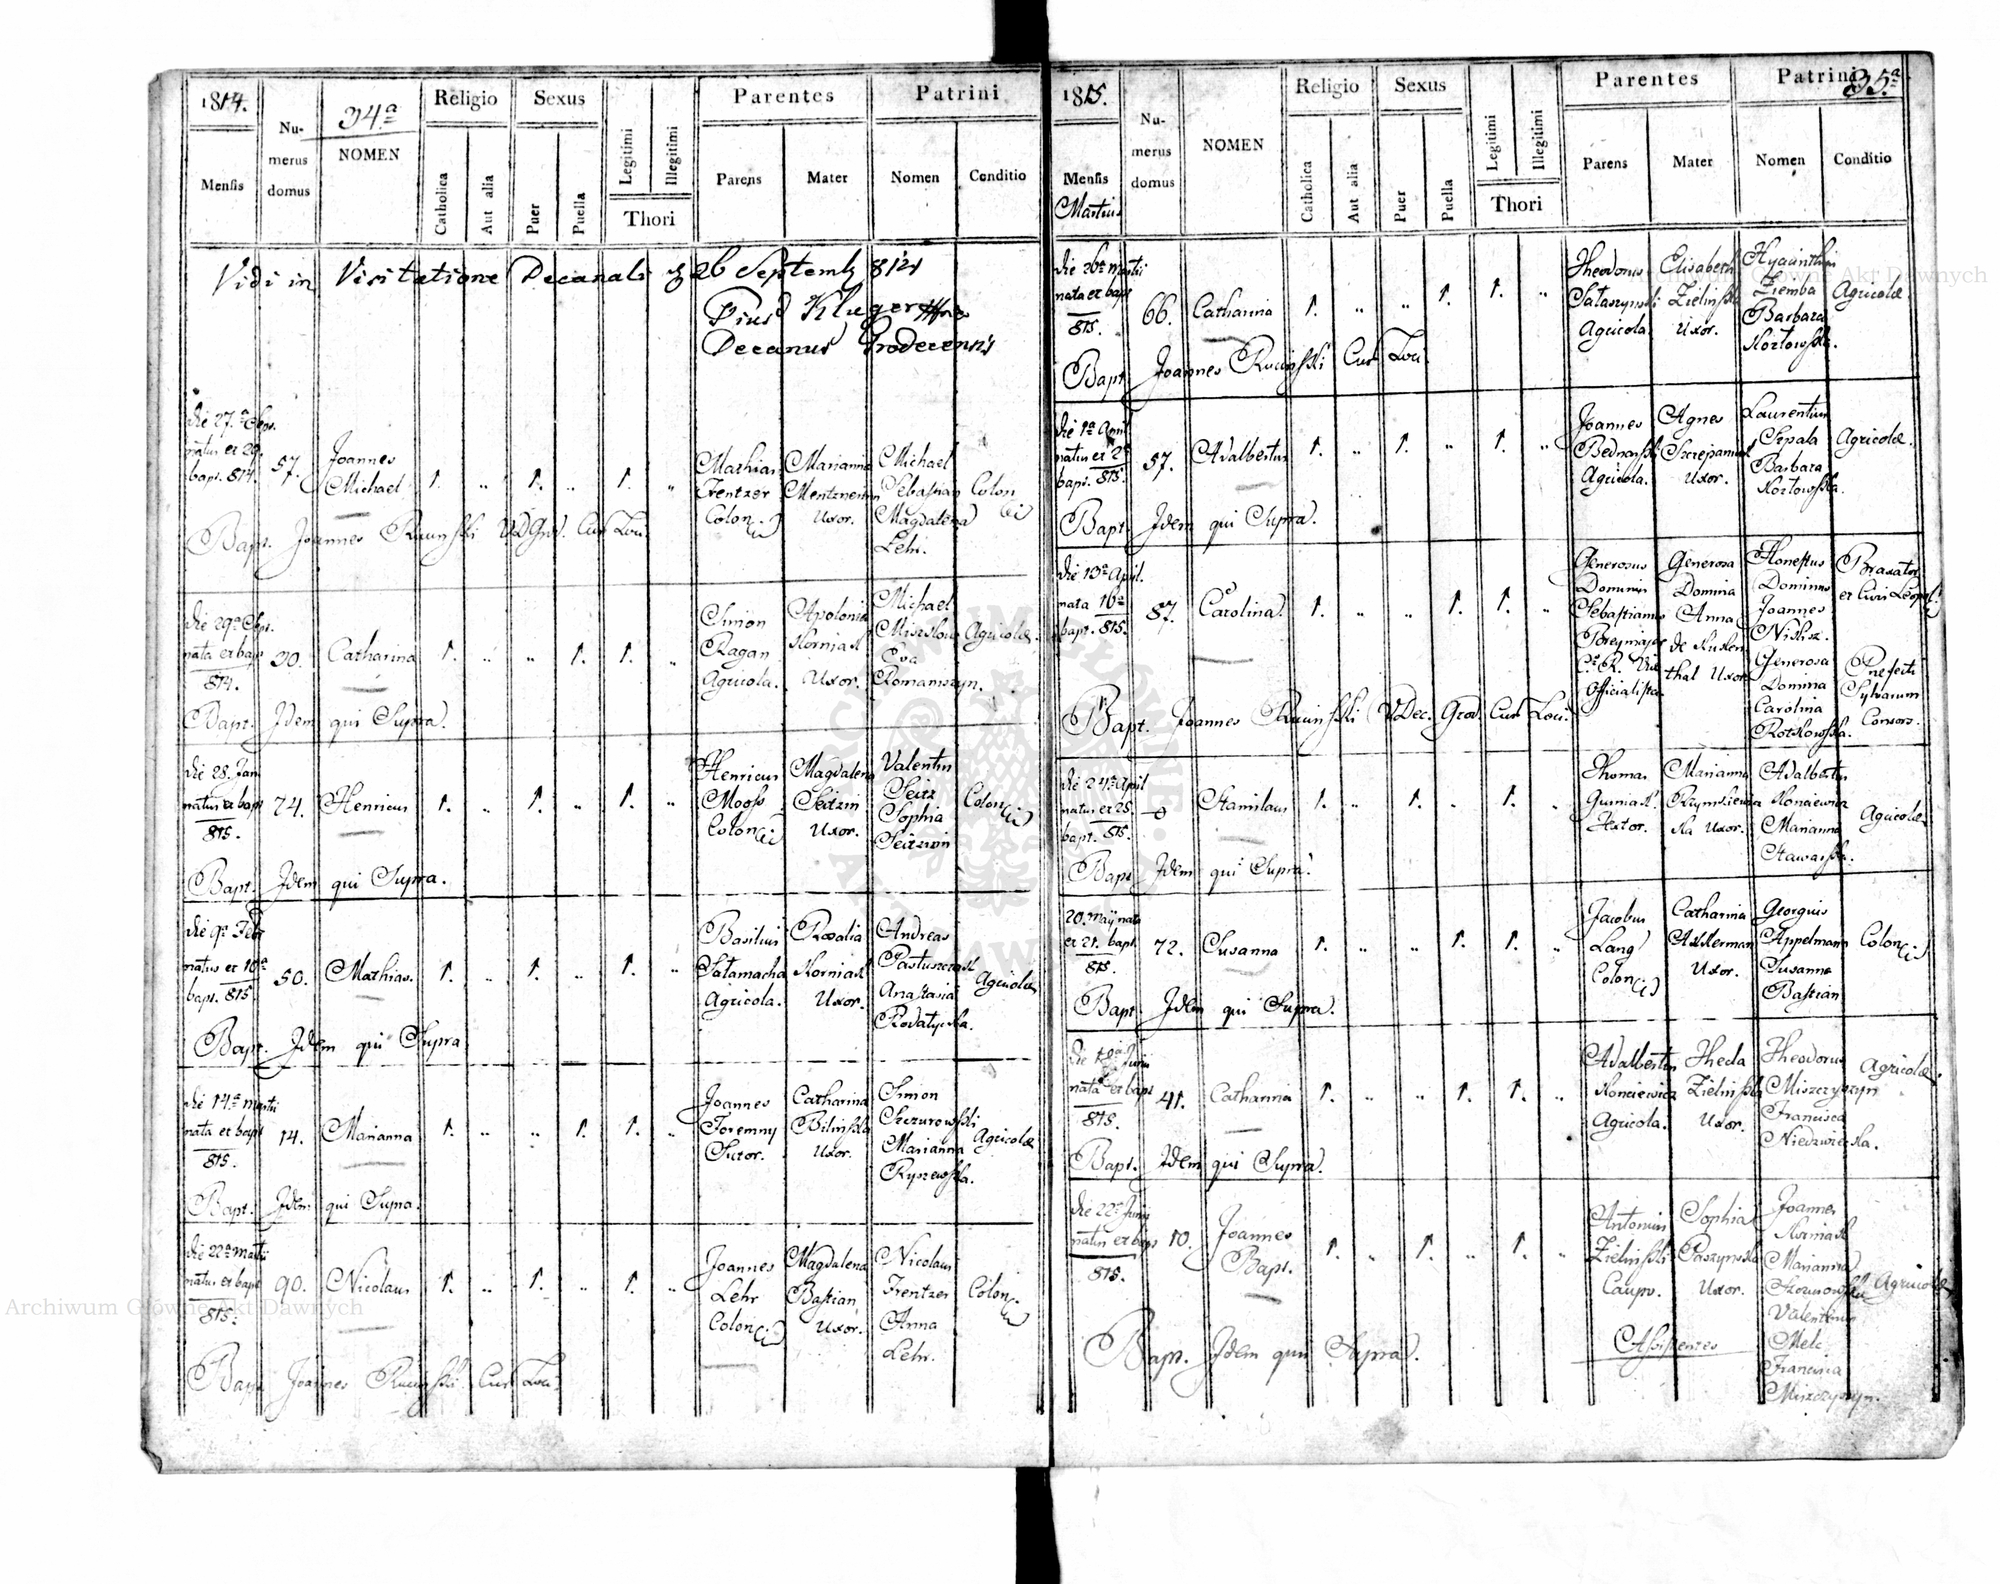 1814.
34.a
Numerus domus
NOMEN
Religio
Sexus
Parentes
Patrini
Mensis
Catholica
Aut alia
Puer
Puella
Legitimi
Illegitimi
Thori
Parens
Mater
Nomen
Conditio
Vidi in Visitatione Decanali
26 Septemb
Pius Kluger
Decanus Grodecensis
natus et 29.
bapt. 814.
57.
Joannes
Michael
1. „ 1. „ 1. „
Mathias
Frentzer
Colon(i)
Marianna
Uxor.
Michael
Sebastian
Magdalena
Lehr.
Colon(i)
Bapt. Joannes Cur Loci
nata et bapt
814.
30.
Catharina
1. „ „ 1. 1. „
Simon
Ragan
Agricola.
Apolonia
Korniak
Uxor.
Michael
Eva
Romaniszyn.
Agricolæ.
Bapt. Idem qui Supra.
die 28. Jan
natus et bapt
815.
74.
Henricus
1. „ 1. „ 1. „
Henricus
Mooss
Colon(i)
Magdalena
Seitzin
Uxor.
Valentin
Seitz
Sophia
Seitzin
Colon(i)
Bapt. Idem qui Supra.
die 9a Febr
natus et 10a
bapt. 815
50.
Mathias.
1. „ 1. „ 1. „
Basilius
Salamacha
Agricola.
Rosalia
Korniak
Uxor.
Andreas
Pastuszczak
Anastasia
Rodatycka.
Agricolæ
Bapt. Idem qui Supra
die 14a martii
nata et bapt
815.
14.
Marianna
1. „ „ 1. 1. „
Joannes
Foremny
Sutor.
Catharina
Bilińska
Uxor.
Simon
Szczurowski
Marianna
Ryszewska.
Agricolæ
Bapt. Idem qui Supra.
die 22a martii
natus et bapt
815.
90.
Nicolaus
1. „ 1. „ 1. „
Joannes
Lehr
Colon(i)
Magdalena
Bastian
Uxor.
Nicolaus
Frentzer
Anna
Lehr.
Colon(i)
Bapt Joannes Cur Loci
1815.
35.a
Numerus domus
NOMEN
Religio
Sexus
Parentes
Patrini
Mensis
Martius
Catholica
Aut alia
Puer
Puella
Legitimi
Illegitimi
Thori
Parens
Mater
Nomen
Conditio
die 26a martii
nata et bapt
815.
66.
Catharina
1. „ „ 1. 1. „
Theodorus
Agricola
Elisabeth
Zielińska
Uxor.
Hyacinthus
Ziemba
Barbara
Kozłowska.
Agricolæ
Bapt Joannes Cur Loci
die 1a April
natus et 2a
bapt. 815.
57.
Adalbertus
1. „ 1. „ 1. „
Joannes
Bednarski
Agricola.
Agnes
Uxor.
Laurentius
Barbara
Kozłowska.
Agricolæ.
Bapt Idem qui Supra.
die 13a April.
nata 16a
bapt. 815.
87.
Carolina.
1. „ „ 1. 1. „
Generosus
Dominus
Sebastianus
Officialista
Generosa
Domina
Anna
Uxor
Honestus
Dominus
Joannes
Generosa
Domina
Carolina
Rotkowska.
Braxator
Præfecti
Sylvarum
Consors.
Bapt. Joannes Cur Loci
die 24a April
natus et 25.
bapt. 815.
Stanislaus
1. „ 1. „ 1. „
Thomas
Textor.
Marianna
Uxor.
Adalbertus
Konciewicz
Marianna
Agricolæ
Bapt Idem qui Supra.
20. Maij nata
et 21. bapt.
815.
72.
Susanna
1. „ „ 1. 1. „
Jacobus
Lang
Colon(i)
Catharina
Akkerman
Uxor.
Georgius
Appelmann
Susanna
Bastian
Colon(i)
Bapt Idem qui Supra.
nata et bapt
815.
41.
Catharina
1. „ „ 1. 1. „
Adalbertus
Konciewicz
Agricola.
Thecla
Zielińska
Uxor.
Theodorus
Miszczyszyn
Francisca
Niedzwiecka.
Agricolæ.
Bapt. Idem qui Supra.
die 22a Junii
natus et bapt
815.
10.
Joannes
Bapt.
1. „ 1. „ 1. „
Antonius
Zieliński
Caupo.
Sophia
Paszynska
Uxor.
Joannes
Korniak
Marianna
Agricolæ
Assistentes
Valentinus
Melc
Francisca
Miszczyszyn.
Bapt. Idem qui Supra.
Archiwum Główne Akt Dawnych
Archiwum Główne Akt Dawnych